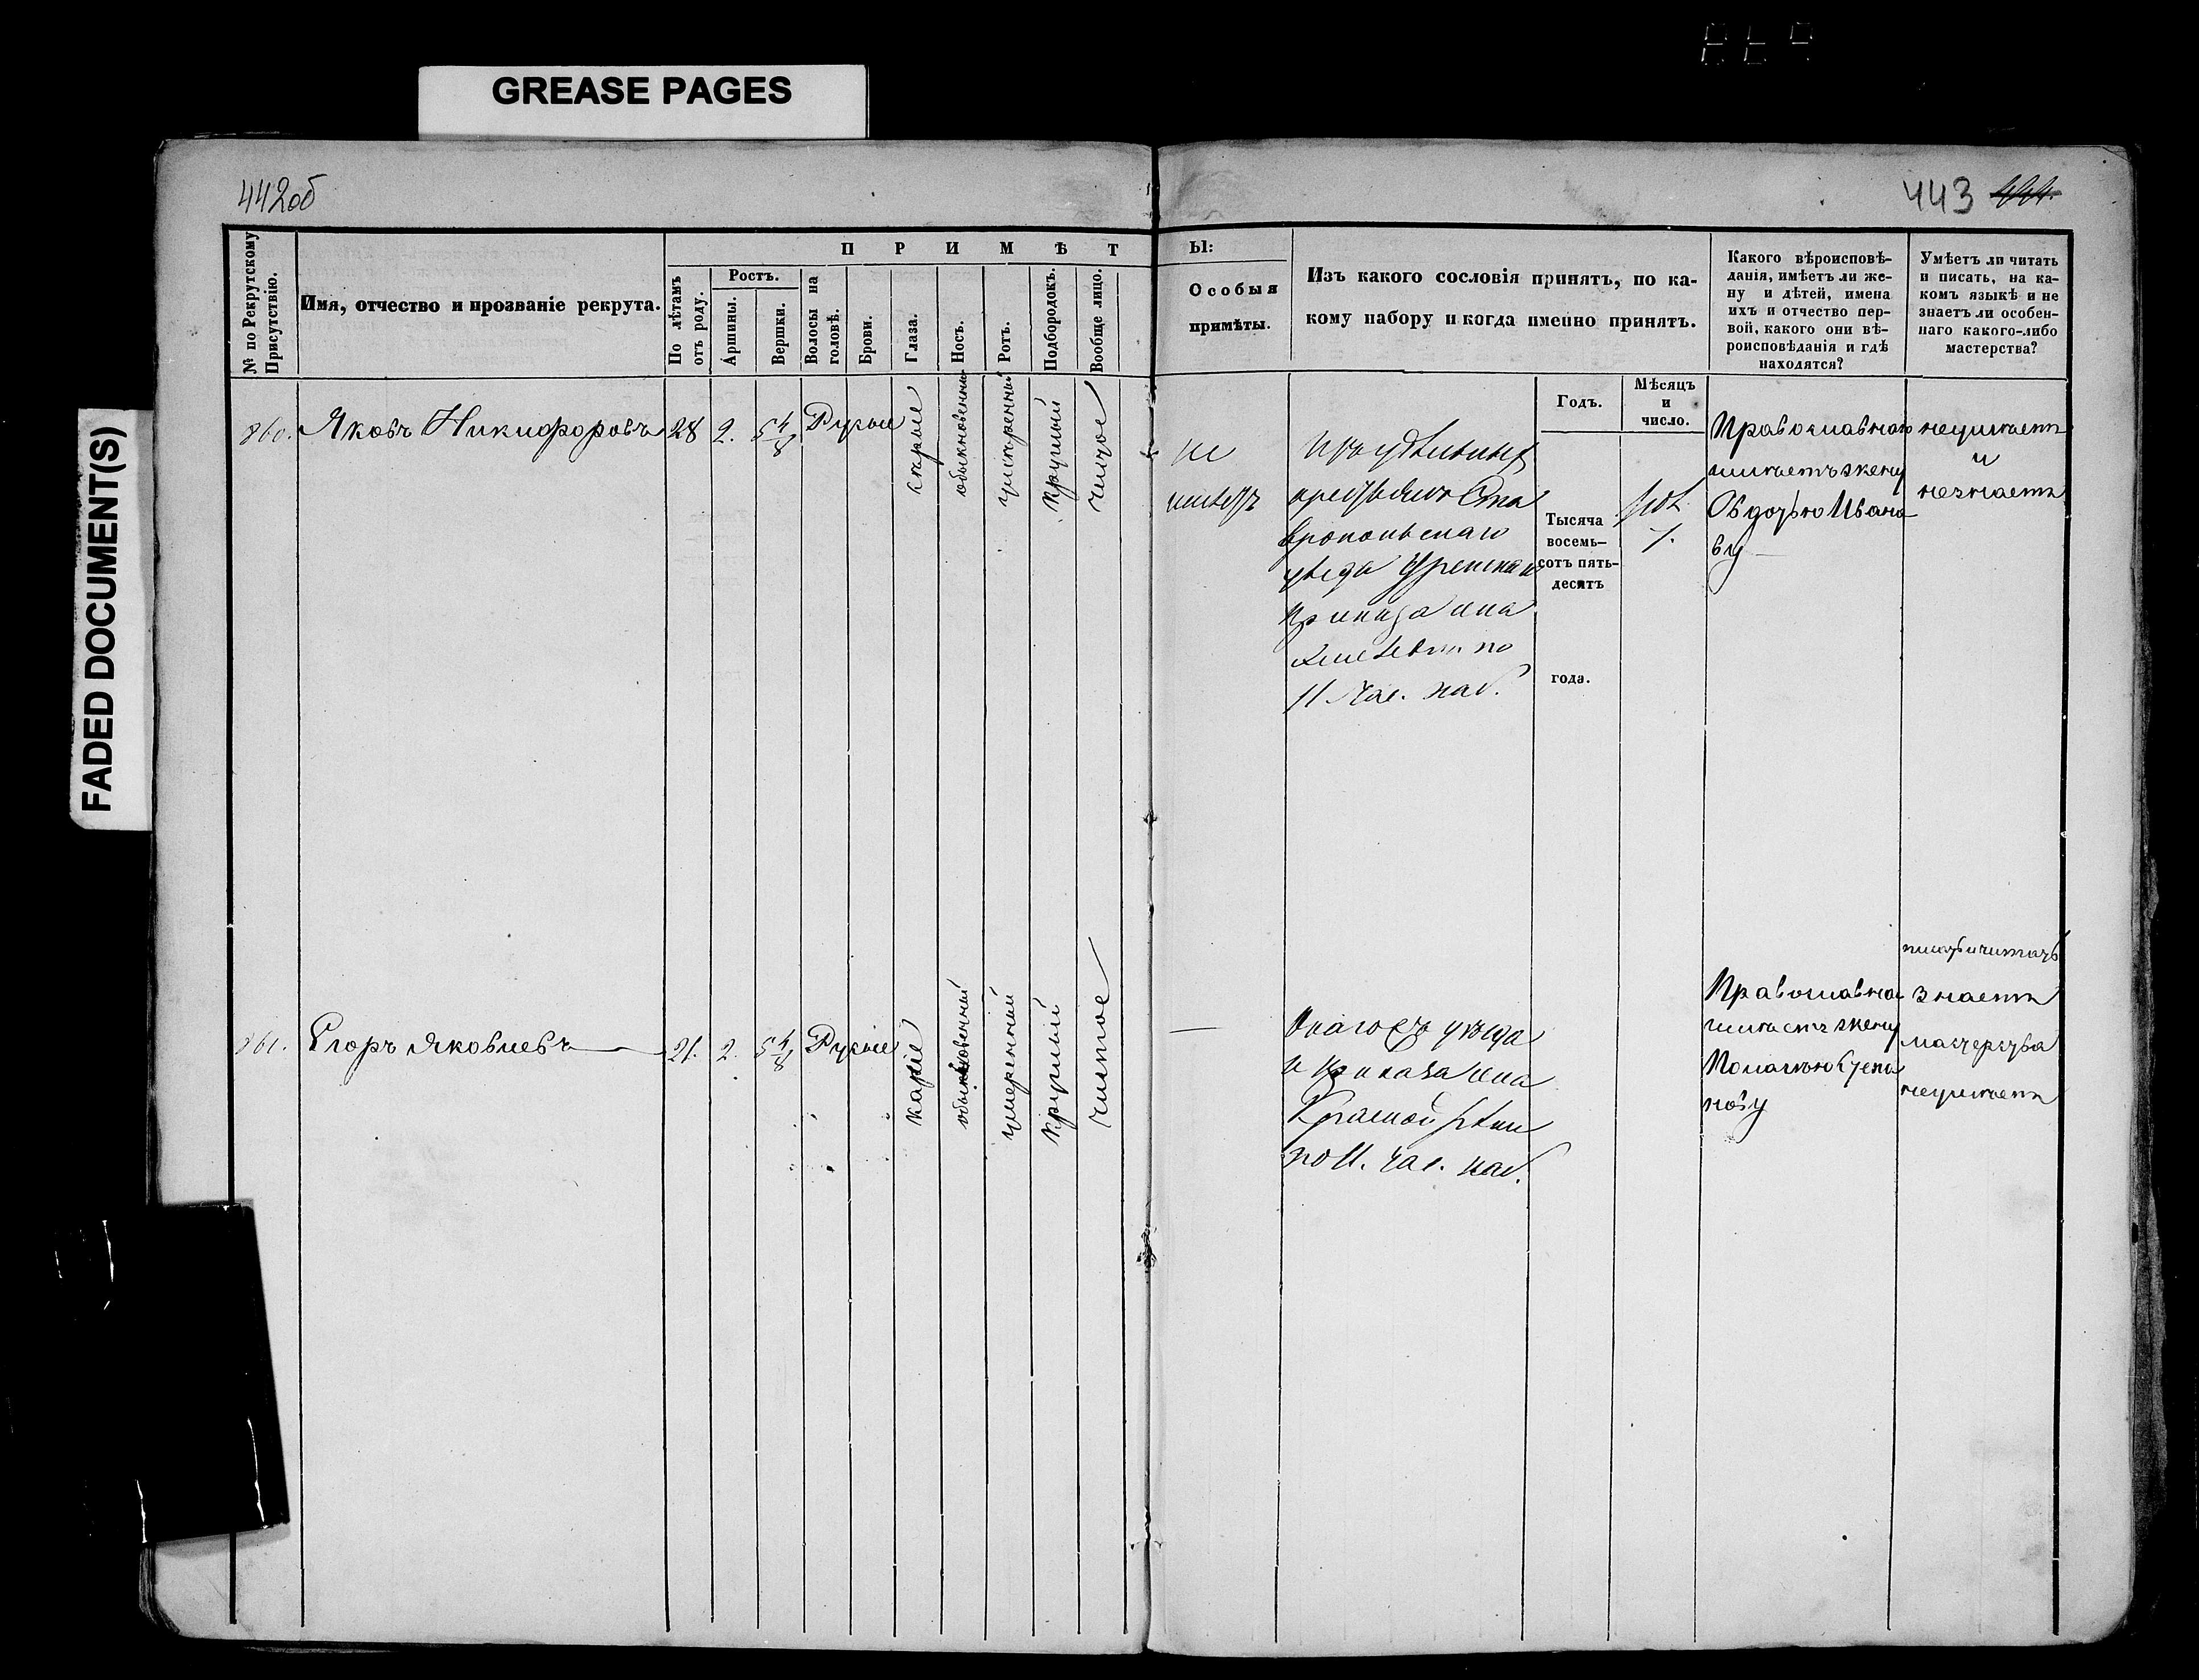 GREASE PAGES
FADED DOCUMENT(S)
442об
443
№ по Рекрутскому Присутствію.
Имя, отчество и прозваніе рекрута.
П Р И М Ѣ Т
По лѣтамъ отъ роду.
Ростъ.
Аршины.
Вершки.
Волосы на головѣ.
Брови.
Глаза.
Носъ.
Ротъ.
Подбородокъ.
Вообще лицо.
Ы:
Особыя
примѣты.
Изъ какого сословія принятъ, по ка-
кому набору и когда именно принятъ.
Годъ.
Мѣсяцъ
и
число.
Какого вѣроисповѣ-
данія, имѣетъ ли же-
ну и дѣтей, имена
ихъ и отчество пер-
вой, какого они вѣ-
роисповѣданія и гдѣ
находятся?
Умѣетъ ли читать
и писать, на ка-
комъ языкѣ и не
знаетъ ли особен-
наго какого-либо
мастерства?
860. Яковъ Никифоровъ 28 2. 5 4/8 Русые
сѣрые
обыкновенный
умѣренный
круглый
чистое
не
имѣетъ
Изъ удѣльныхъ
крестьянъ Ста
вропольскаго
уѣзда
Приказа села
по
11 час. наб.
Тысяча
восемь-
сотъ пять-
десятъ
года.
Православнаго
имѣетъ жену
Овдотью Ивано
ву
неумѣетъ
и
незнаетъ
861. Егоръ Яковлевъ 21. 2. 5 4/8 Русые
каріе
обыкновенный
умѣренный
круглый
чистое
Онагожъ уѣзда
и приказа села
по 11. час. наб.
Православна
имѣетъ жену
Степа
нову
писать и читать
знаетъ
мастерства
неумѣетъ